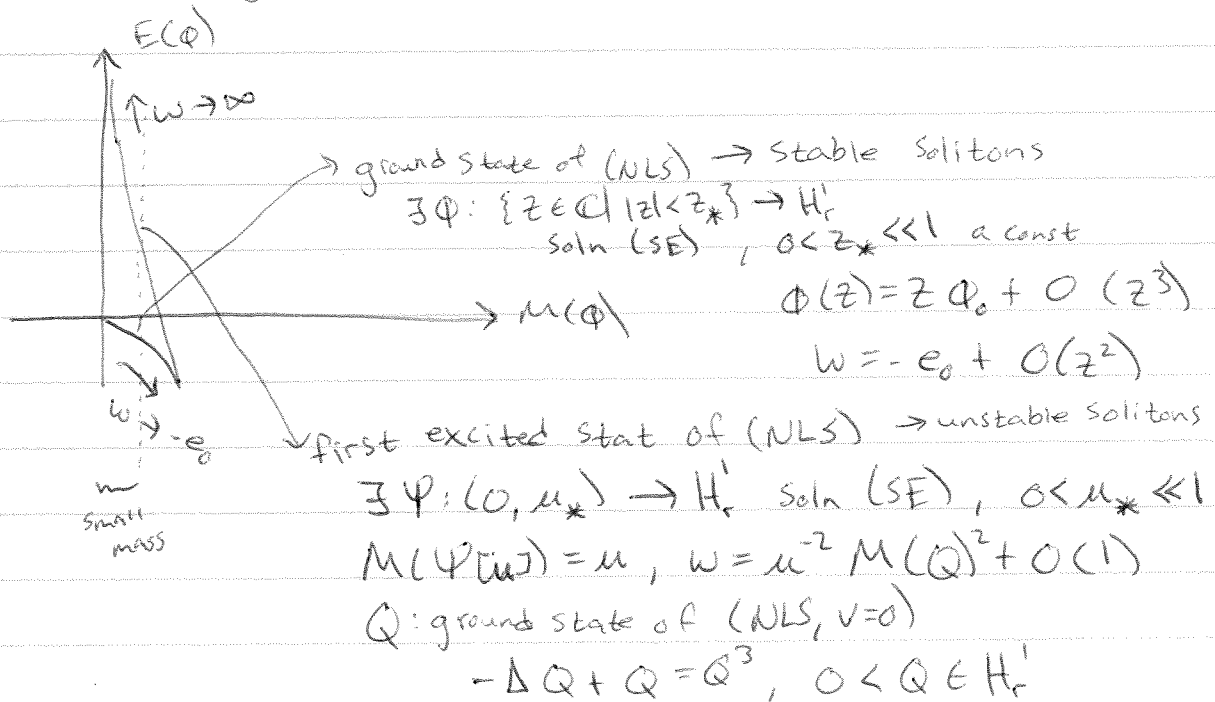 E(Q)
↑ω→∞
ground state of (NLS) → stable solitons
∃Φ: {z∈ℂ| |z|<z_*} → H_r^1
soln (SE), 0<z_*≪1 a const
Φ(z)=zφ_0+O(z^3)
M(Q)
ω=-e_0+O(z^2)
ω → -e_0
first excited stat of (NLS) → unstable solitons
∃Ψ:(0,μ_*) → H_r^1 soln (SE), 0<μ_*≪1
small mass
M(Ψ[μ])=μ, ω=μ^{-2} M(Q)^2+O(1)
Q: ground state of (NLS, V=0)
-ΔQ+Q=Q^3, 0<Q∈H_r^1